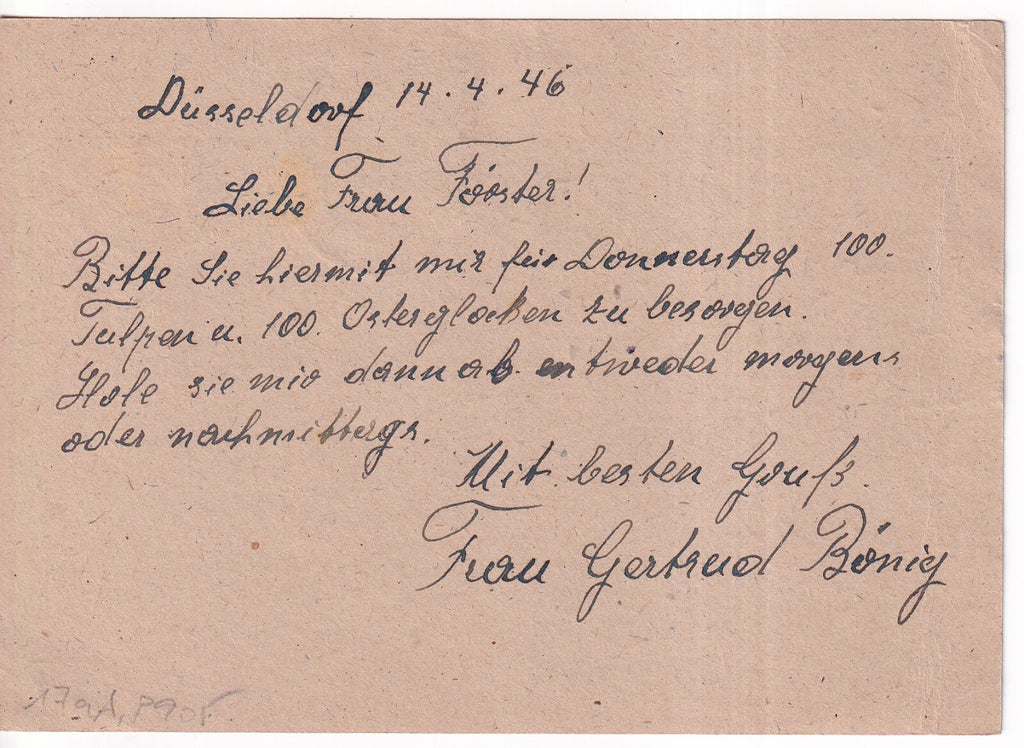 Düsseldorf 14.4.46
Liebe Frau Förster!
Bitte Sie hiermit mir für Donnerstag 100.
Tulpen u. 100. Osterglocken zu besorgen.
Hole sie mir dann ab entweder morgens
oder nachmittags.
Mit besten Gruß.
Frau Gertrud Bönig